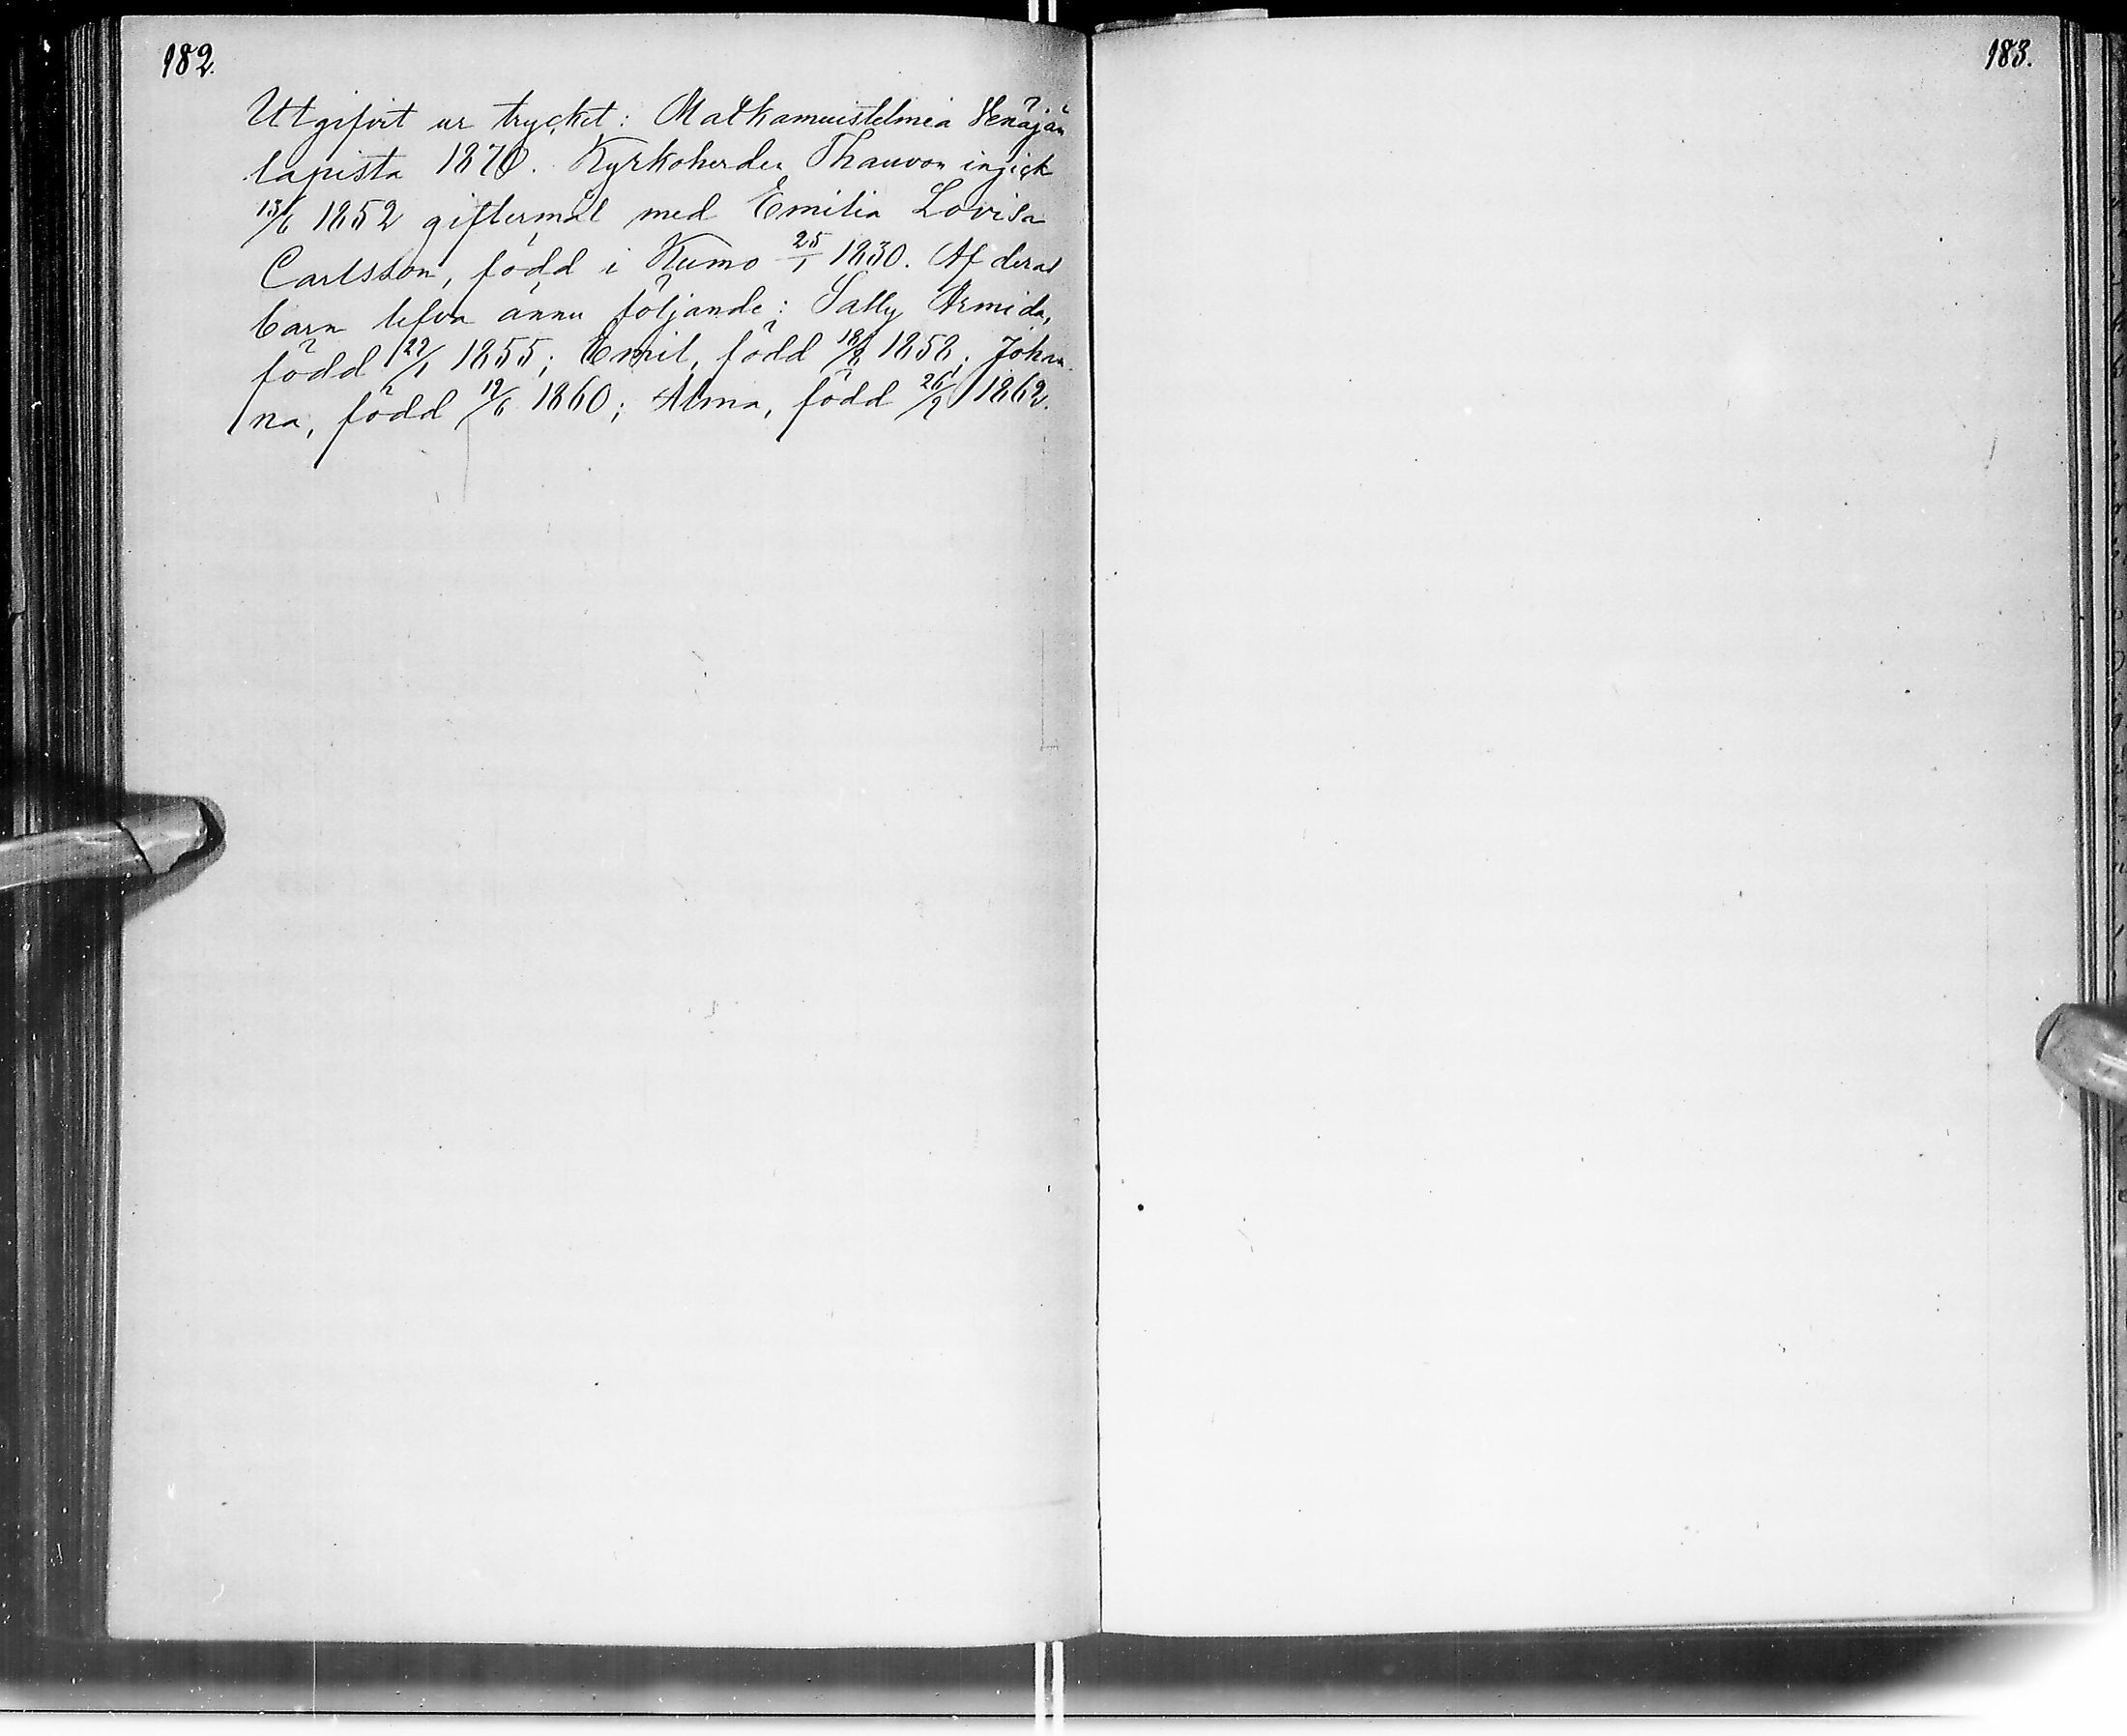 182.
Utgifvit ur trycket: Matkamuistelmia Venäjän
lapista 1870. Kyrkoherden Thauvon ingick
13/6 1852 giftermål med Emilia Lovisa
Carlsson, född i Kumo 25/1 1830. Af deras
barn lefva ännu följande: Sally Armida,
född 22/1 1855; Emil, född 18/2 1858; Johan-
na, född 12/6 1860; Alma, född 26/2 1862.
183.